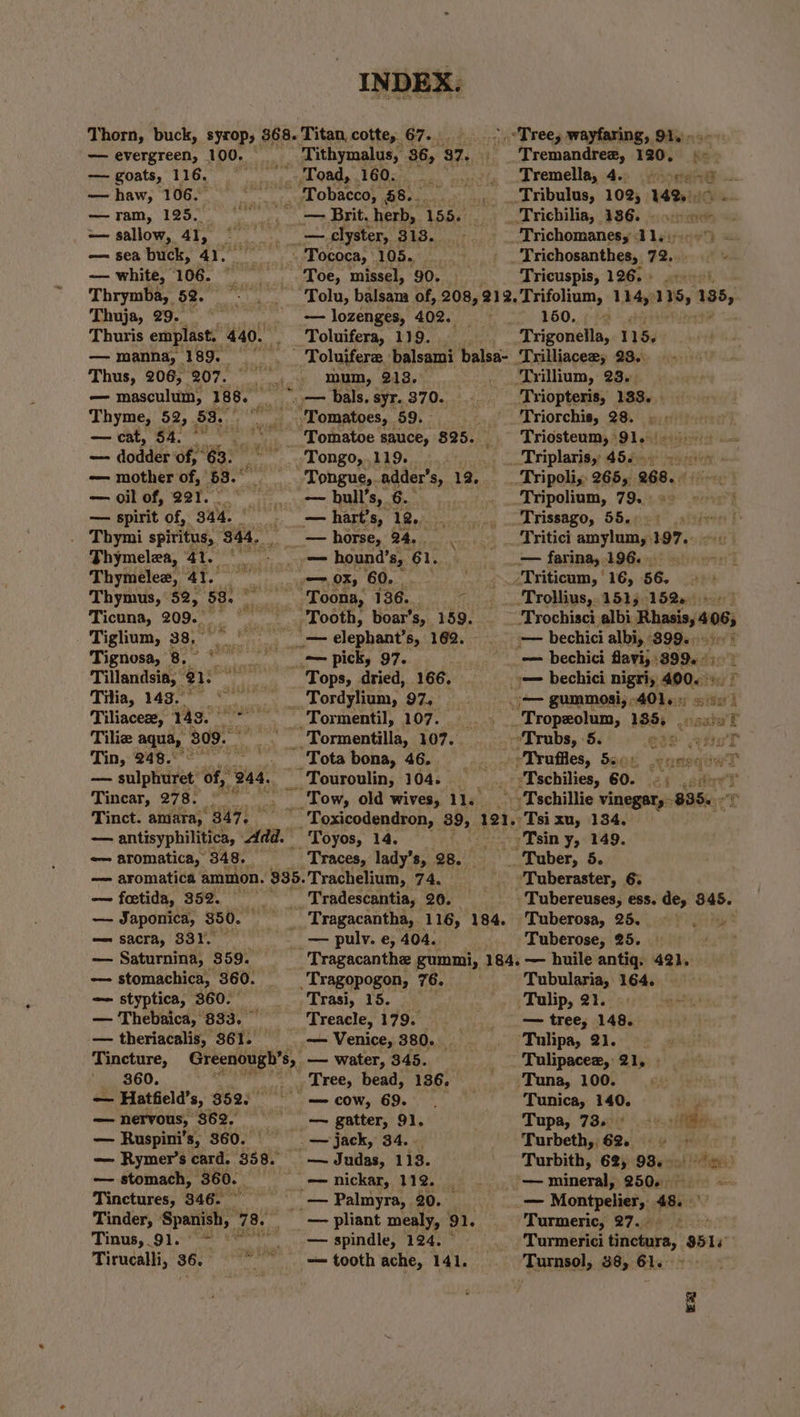 INDEX.
Thorn, buck, syrop, 368.
— evergreen, 100.
— goats, 116.
— haw, 106.
— ram, 125.
— sallow, 41,
— sea buck, 41.
— white, 106.
Thrymba, 52.
Thuja, 29.
Thuris emplast. 440.
— manna, 189.
Thus, 206, 207.
— masculum, 188.
Thyme, 52, 53.
— cat, 54.
— dodder of, 63.
— mother of, 53.
— oil of, 221.
— spirit of, 344.
Thymi spiritus, 344.
Thymelæa, 41.
Thymeleæ, 41.
Thymus, 52, 53.
Ticuna, 209.
Tiglium, 38,
Tignosa, 8.
Tillandsia, 21.
Tilia, 143.
Tiliaceæ, 143.
Tiliæ aqua, 309.
Tin, 248.
— sulphuret of, 244.
Tincar, 278.
Tinct. amara, 347.
— antisyphilitica, Add.
— aromatica, 348.
— aromatica ammon. 335.
— fœtida, 352.
— Japonica, 350.
— sacra, 331.
— Saturnina, 359.
— stomachica, 360.
— styptica, 360.
— Thebaica, 333.
— theriacalis, 361.
Tincture, Greenough's,
360.
— Hatfield's, 352.
— nervous, 362.
— Ruspini's, 360.
— Rymer's card. 358.
— stomach, 360.
Tinctures, 346.
Tinder, Spanish, 78.
Tinus, 91.
Tirucalli, 36.
Titan, cotte, 67.
Tithymalus, 36, 37.
Toad, 160.
Tobacco, 58.
— Brit. herb, 155.
— clyster, 313.
Tococa, 105.
Toe, missel, 90.
Tolu, balsam of, 208, 212.
— lozenges, 402.
Toluifera, 119.
Toluiferæ balsami balsa-
mum, 213.
— bals. syr. 370.
Tomatoes, 59.
Tomatoe sauce, 325.
Tongo, 119.
Tongue, adder's, 12.
— bull's, 6.
— hart's, 12.
— horse, 24.
— hound's, 61.
— ox, 60.
Toona, 136.
Tooth, boar's, 159.
— elephant's, 162.
— pick, 97.
Tops, dried, 166.
Tordylium, 97.
Tormentil, 107.
Tormentilla, 107.
Tota bona, 46.
Touroulin, 104.
Tow, old wives, 11.
Toxicodendron, 39, 121.
Toyos, 14.
Traces, lady's, 28.
Trachelium, 74.
Tradescantia, 20.
Tragacantha, 116, 184.
— pulv. e, 404.
Tragacanthæ gummi, 184.
Tragopogon, 76.
Trasi, 15.
Treacle, 179.
— Venice, 380.
— water, 345.
Tree, bead, 136.
— cow, 69.
— gatter, 91.
— jack, 34.
— Judas, 113.
— nickar, 112.
— Palmyra, 20.
— pliant mealy, 91.
— spindle, 124.
— tooth ache, 141.
Tree, wayfaring, 91.
Tremandreæ, 120.
Tremella, 4.
Tribulus, 102, 142.
Trichilia, 136.
Trichomanes, 11.
Trichosanthes, 72.
Tricuspis, 126.
Trifolium, 114, 115, 135,
160.
Trigonella, 115.
Trilliaceæ, 23.
Trillium, 23.
Triopteris, 133.
Triorchis, 28.
Triosteum, 91.
Triplaris, 45.
Tripoli, 265, 268.
Tripolium, 79.
Trissago, 55.
Tritici amylum, 197.
— farina, 196.
Triticum, 16, 56.
Trollius, 151, 152.
Trochisci albi Rhasis, 406,
— bechici albi, 399.
— bechici flavi, 399.
— bechici nigri, 400.
— gummosi, 401.
Tropæolum, 135,
Trubs, 5.
Truffles, 5.
Tschilies, 60.
Tschillie vinegar, 335.
Tsi xu, 134.
Tsin y, 149.
Tuber, 5.
Tuberaster, 6.
Tubereuses, ess. de, 345.
Tuberosa, 25.
Tuberose, 25.
— huile antiq. 421.
Tubularia, 164.
Tulip, 21.
— tree, 148.
Tulipa, 21.
Tulipaceæ, 21,
Tuna, 100.
Tunica, 140.
Tupa, 73.
Turbeth, 62.
Turbith, 62, 93.
— mineral, 250.
— Montpelier, 48.
Turmeric, 27.
Turmerici tinctura, 351.
Turnsol, 38, 61.